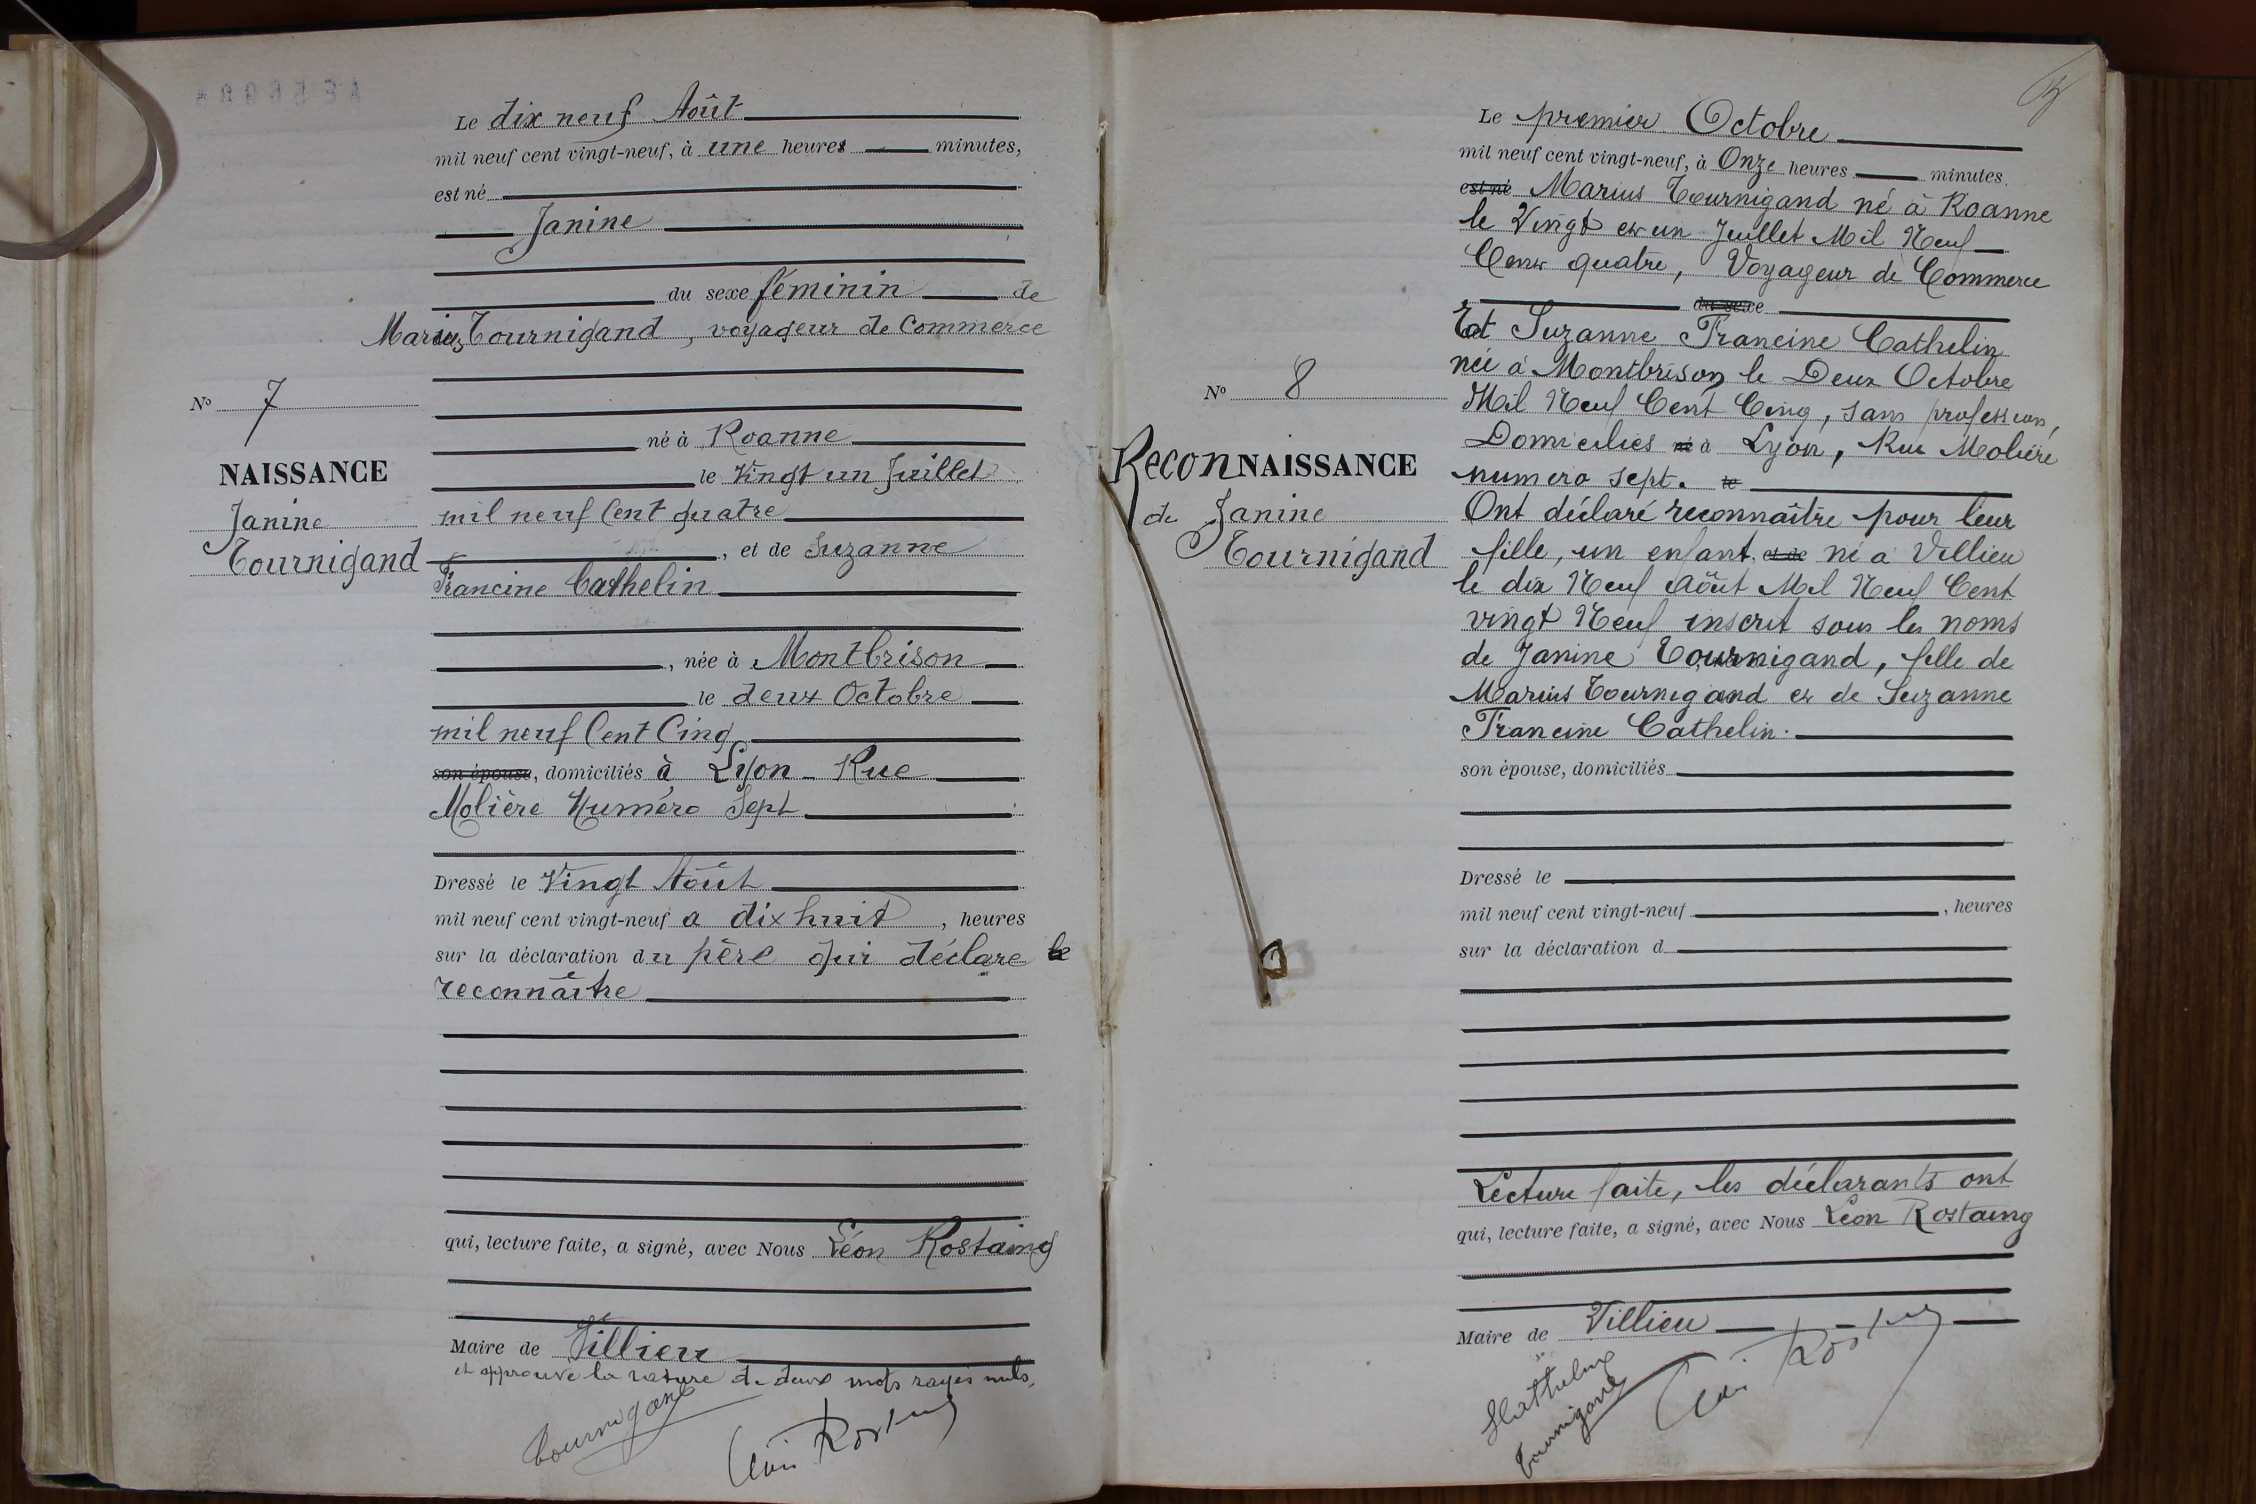 Le dix neuf Août
mil neuf cent vingt-neuf, à une heures minutes,
est né
Janine
du sexe féminin de
Marius Tournigand, voyageur de Commerce
né à Roanne
le Vingt un Juillet
mil neuf Cent quatre
, et de Suzanne
Francine Cathelin
, née à Montbrison
le deux Octobre
mil neuf Cent Cinq
son épouse, domiciliés à Lyon - Rue
Molière Numéro Sept
Dressé le Vingt Août
mil neuf cent vingt-neuf a dix huit, heures
sur la déclaration du père qui déclare le
reconnaître
qui, lecture faite, a signé, avec Nous Léon Rostaing
Maire de Villieu
et approuvé la rature de deux mots rayés nuls.
Tournigand
Léon Rostaing
No 7
NAISSANCE
Janine
Tournigand
Le premier Octobre
mil neuf cent vingt-neuf, à Onze heures minutes.
est né Marius Tournigand né à Roanne
le Vingt et un Juillet Mil Neuf
Cent quatre, Voyageur de Commerce
du sexe
Et Suzanne Francine Cathelin
née à Montbrison le Deux Octobre
Mil Neuf Cent Cinq, sans profession,
Domiciliés né à Lyon, Rue Molière
numero sept. le
Ont déclaré reconnaître pour leur
fille, un enfant, et de né a Villieu
le dix Neuf Août Mil Neuf Cent
vingt Neuf inscrit sous les noms
de Janine Tournigand, fille de
Marius Tournigand et de Suzanne
Francine Cathelin.
son épouse, domiciliés
Dressé le
mil neuf cent vingt-neuf, heures
sur la déclaration d
Lecture faite, les déclarants ont
qui, lecture faite, a signé, avec Nous Léon Rostaing
Maire de Villieu
SCathelin
Tournigand
Léon Rostaing
No 8
ReconNAISSANCE
de Janine
Tournigand